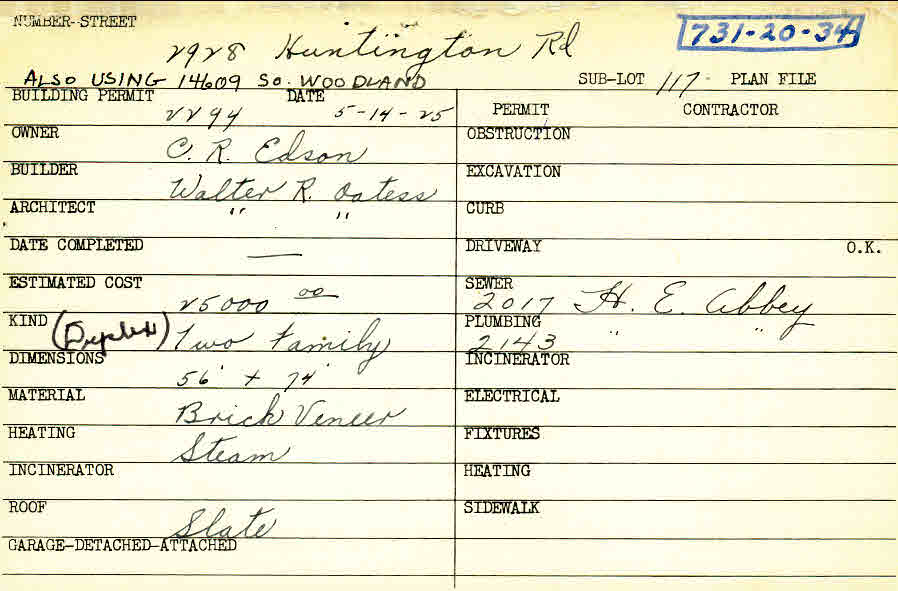 NUMBER-STREET
2928 Huntington Rd
731-20-34
ALSO USING 14609 So. WOODLAND
SUB-LOT 117 PLAN FILE
BUILDING PERMIT 2294 DATE 5-14-25
PERMIT CONTRACTOR
OWNER C. R. Edson
OBSTRUCTION
BUILDER Walter R. Oatess
EXCAVATION
ARCHITECT " "
CURB
DATE COMPLETED —
DRIVEWAY O.K.
ESTIMATED COST 25000 00
SEWER 2017 H. E. Abbey
KIND (Duplex) Two Family
PLUMBING 2143 " "
DIMENSIONS 56' + 74'
INCINERATOR
MATERIAL Brick Veneer
ELECTRICAL
HEATING Steam
FIXTURES
INCINERATOR
HEATING
ROOF Slate
SIDEWALK
GARAGE-DETACHED-ATTACHED